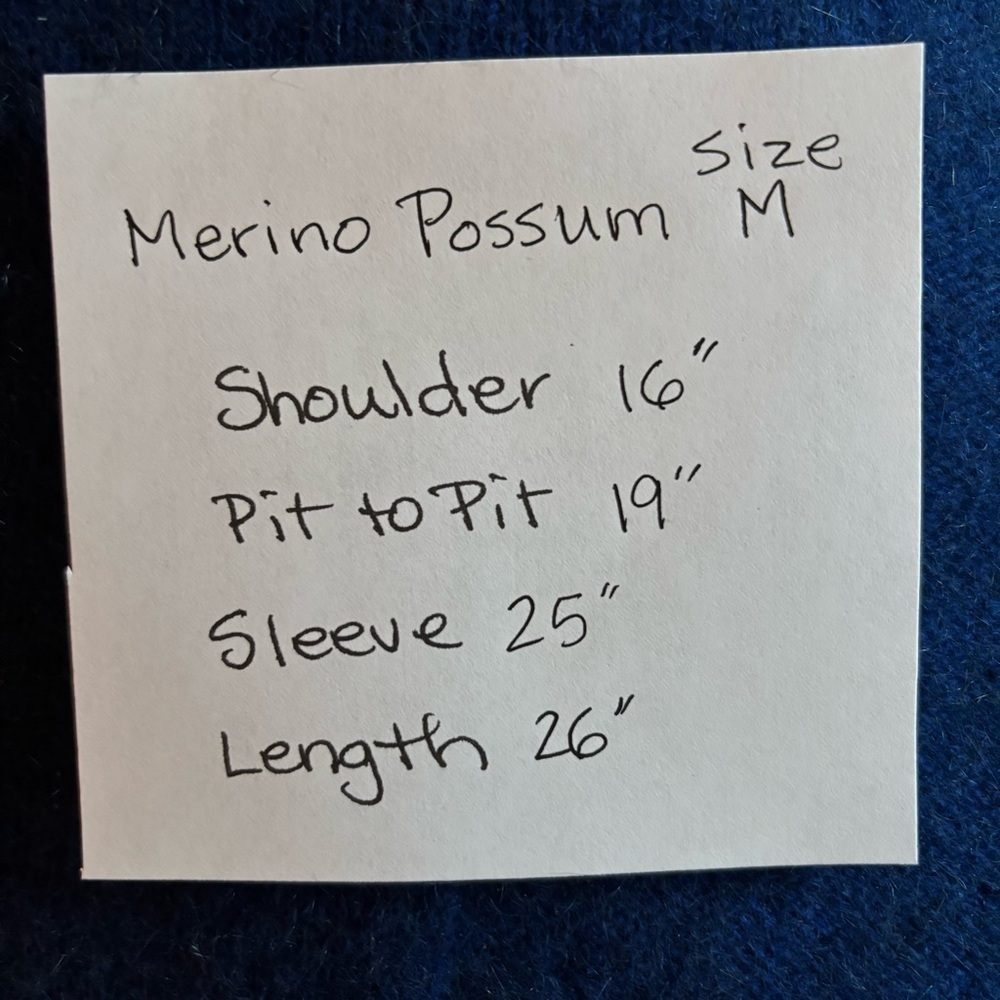 Size
Merino Possum M
Shoulder 16"
Pit to Pit 19"
Sleeve 25"
Length 26"